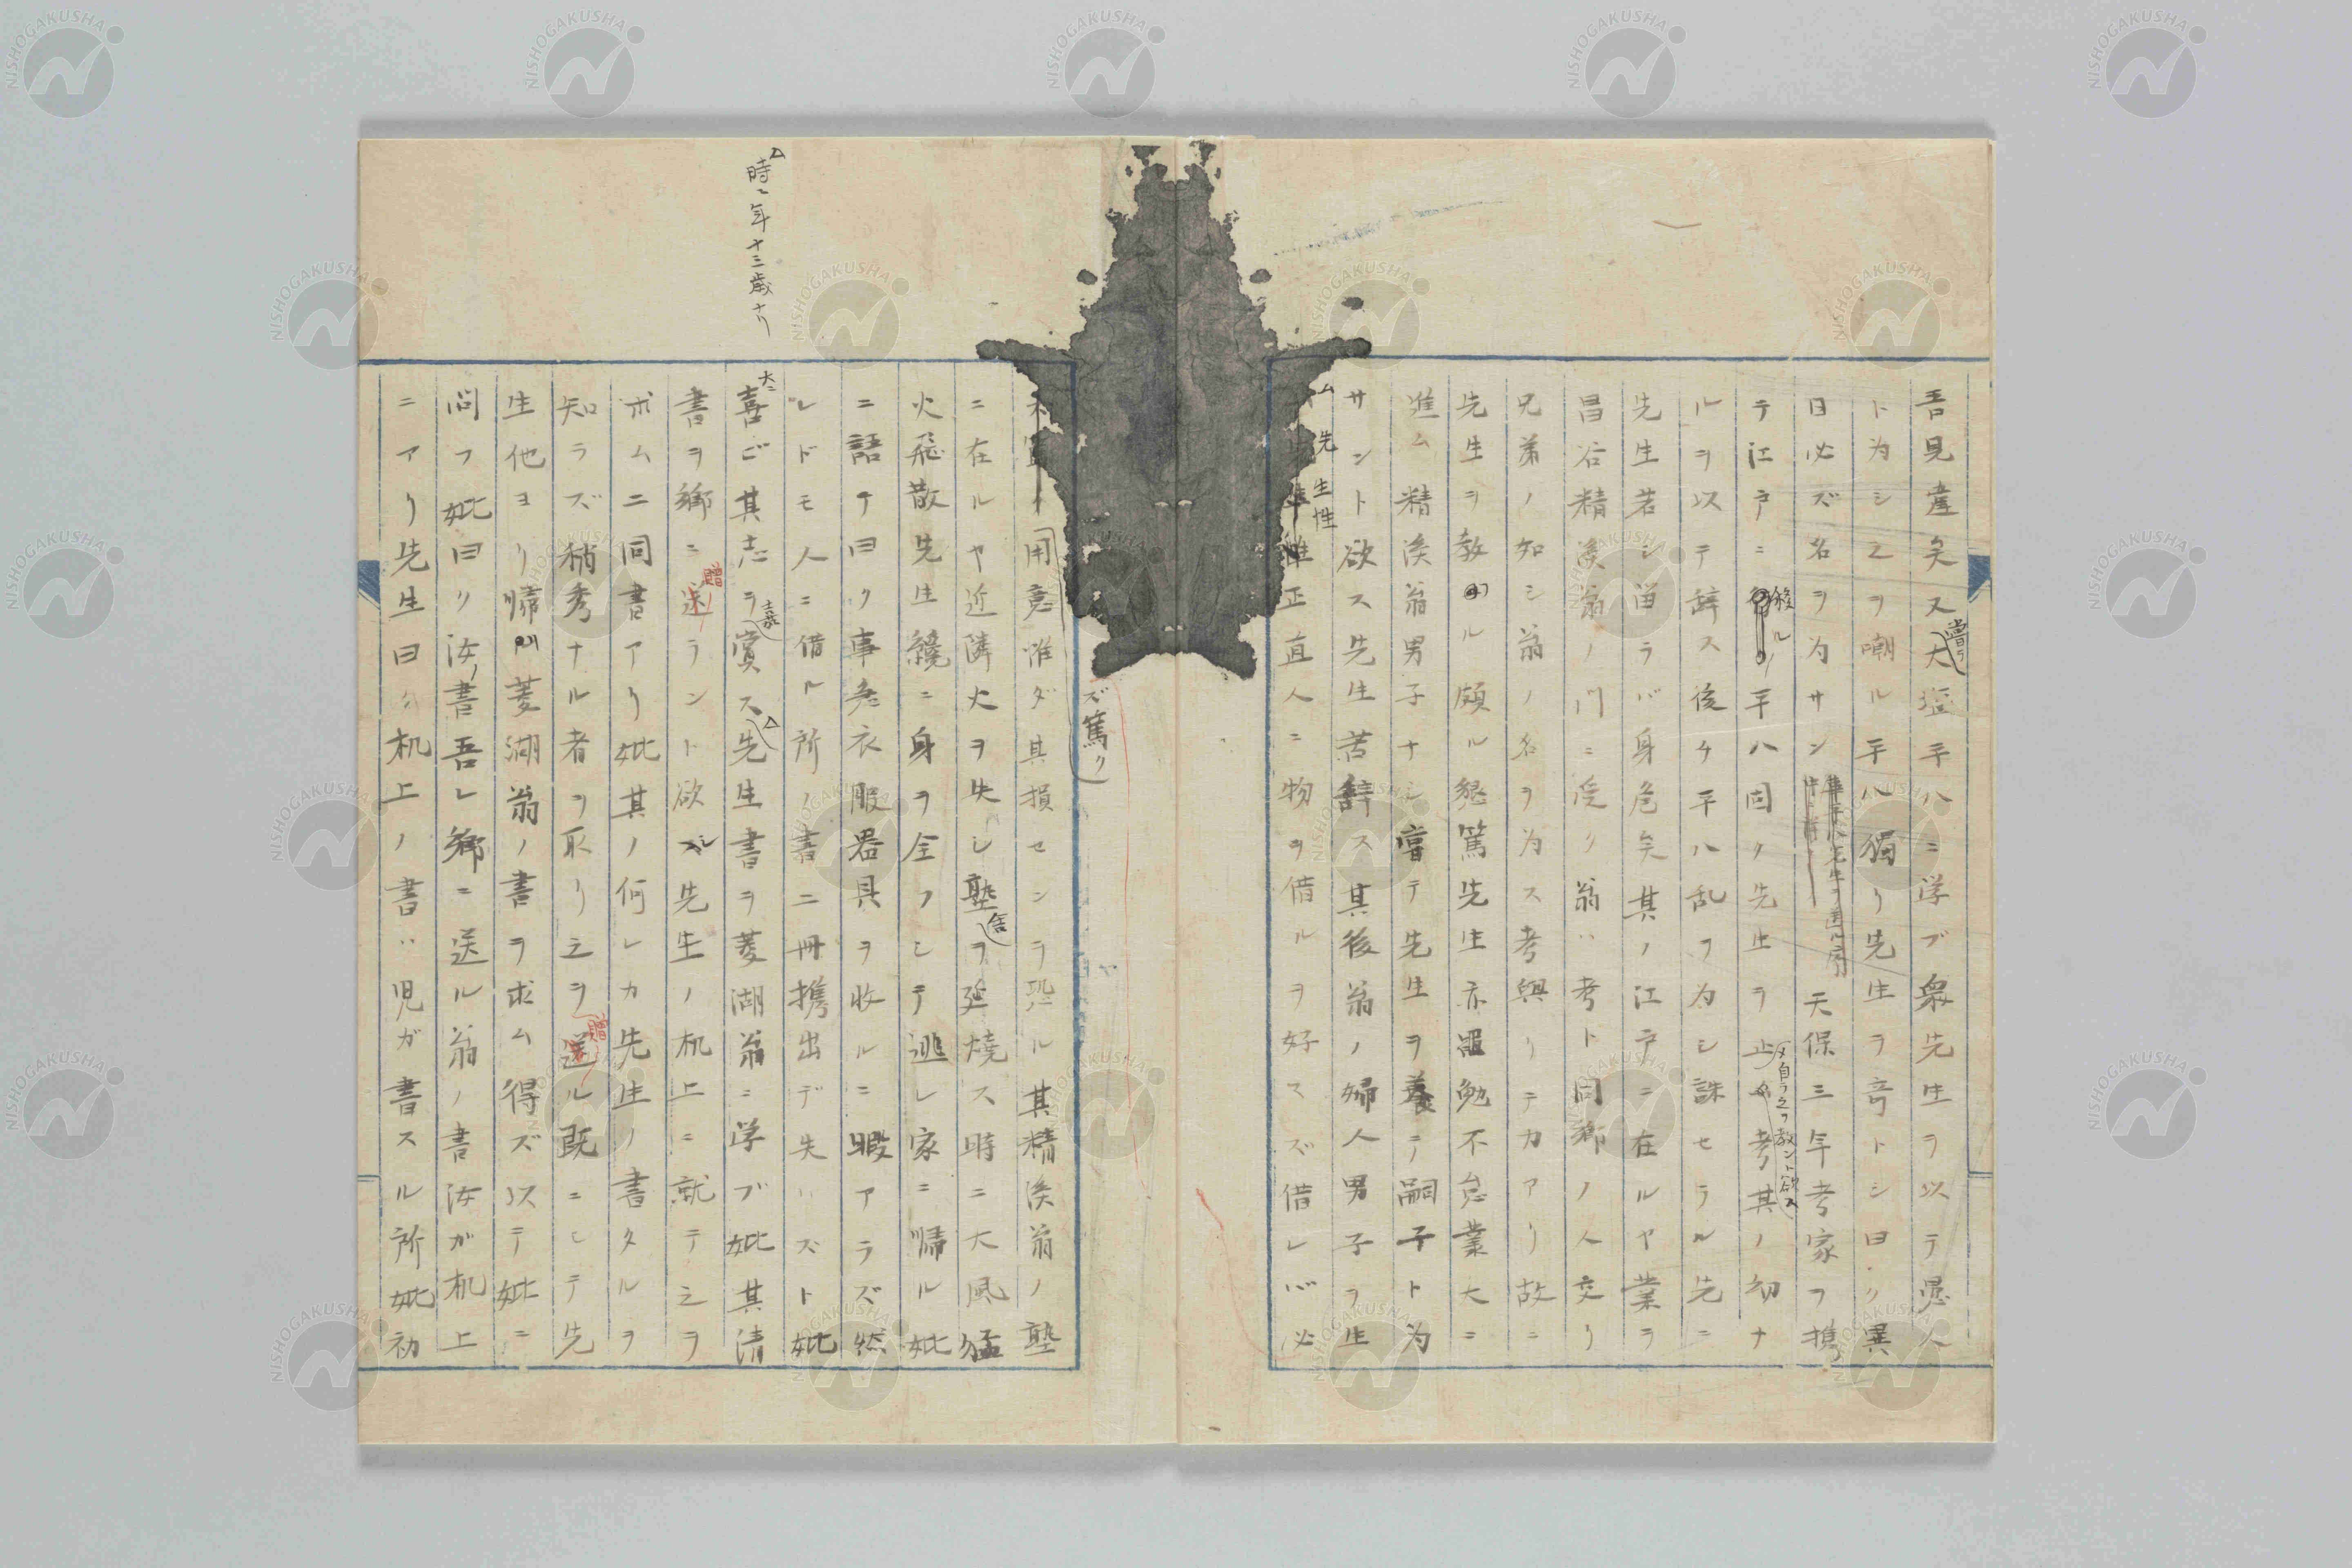 吾見違矣又大塩平八ニ学ブ衆先生ヲ以テ愚人
嘗テ
ト为シ之ヲ嘲ル平八獨リ先生ヲ奇トシ曰ク異
日必ズ名ヲ为サン天保三年考家ヲ携
テ江戸ニ移ル平八固ク先生ヲ止
自ラ之ヲ教ント欲ス
考其ノ初ナ
ルヲ以テ辞ス後チ平八乱ヲカシ誅セラル先ニ
先生若シ畄ラバ身危矣其ノ江戸ニ在ルヤ業ヲ
昌谷精渓翁ノ門ニ受ク翁ハ考ト同郷ノ人交リ
兄弟ノ如シ翁ノ名ヲ为ス考與リテカアリ故ニ
先生ヲ教ル頗ル懇篤先生亦黽勉不怠業大ニ
進ム精渓翁男子ナシ嘗テ先生ヲ養ニ嗣子ト为
サント欲ス先生苦辞ス其後翁ノ婦人男子ヲ生
ム先生性
正直人ニ物ヲ借ルヲ好マズ借レバ必
ズ篤ク
用意惟ダ其損センヲ恐ル其精渓翁ノ塾
ニ在ルヤ近隣火ヲ失シ塾舎ヲ延燒ス時ニ大風猛
火飛散先生纔ニ身ヲ全フシテ逃レ家ニ帰ル妣
ニ語テ曰ク事急衣服器具ヲ收ルニ暇アラズ然
レドモ人ニ借ル所ノ書二冊携出デ失ハズト妣
大ニ
喜ビ其志ヲ嘉賞ス先生書ヲ菱湖翁ニ学ブ妣其清
時ニ年十三歳ナリ
書ヲ郷ニ送ラント欲シ先生ノ机上ニ就テ之ヲ
贈
求ムニ同書アリ妣其ノ何レカ先生ノ書タルヲ
知ラズ稍秀ナル者ヲ取リ之ヲ送ル既ニシテ先
贈
生他ヨリ帰リ菱湖翁ノ書ヲ求ム得ズ以テ妣ニ
問フ妣曰ク汝ノ書吾レ郷ニ送ル翁ノ書汝ガ机上
ニアリ先生曰ク机上ノ書ハ児ガ書スル所妣初
NISHOGAKUSHA